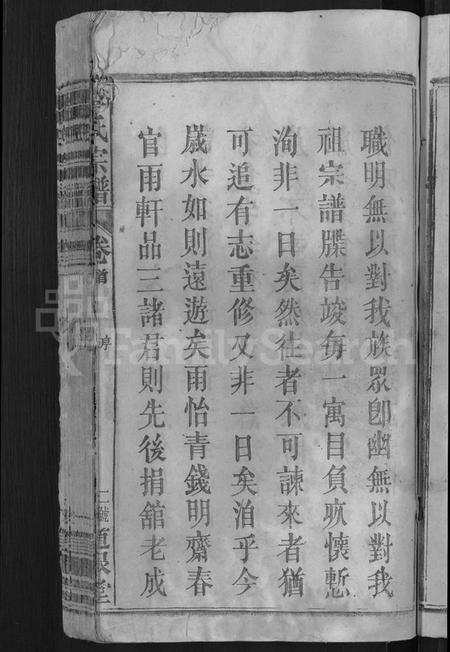 職明無以對我族眾卽幽無以對我
祖宗譜牒告竣每一寓目負疚懷慙
洵非一日矣然往者不可諫來者猶
可追有志重修又非一日矣洎乎今
歲水如則遠遊矣雨怡青錢明齋春
官雨軒品三諸君則先後捐舘老成
氏宗譜
卷首
FamilySearch